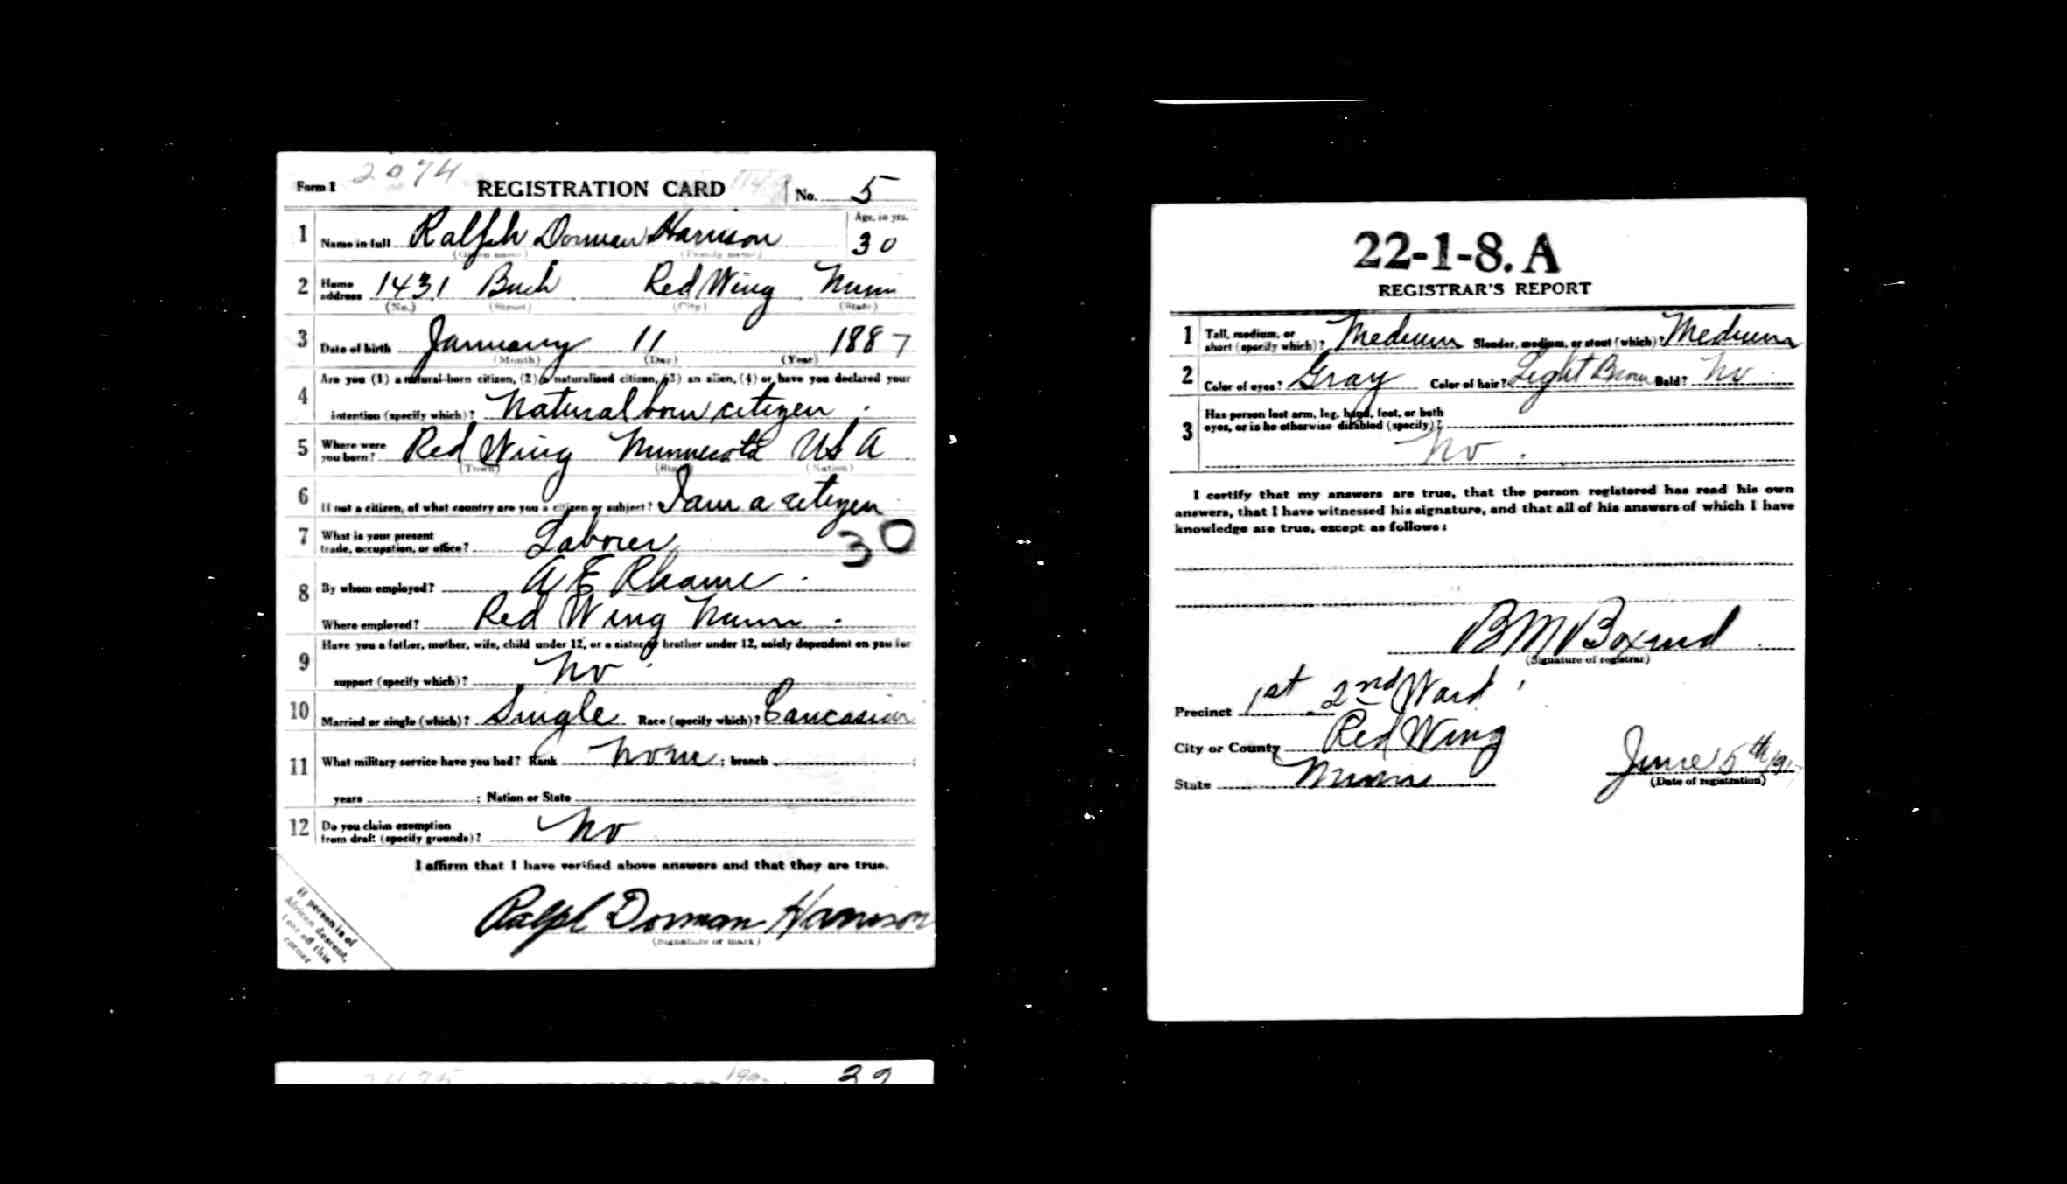 Form 1 2074 REGISTRATION CARD No. 5
1 Name in full Ralph Dorman Harrison Age, in yrs. 30
(Given name) (Family name)
2 Home address 1431 Bush Red Wing Minn
(No.) (Street) (City) (State)
3 Date of birth January 11 1887
(Month) (Day) (Year)
4 Are you (1) a natural-born citizen, (2) a naturalized citizen, (3) an alien, (4) or have you declared your
intention (specify which)? Natural born citizen.
5 Where were you born? Red Wing Minnesota USA
(Town) (State) (Nation)
6 If not a citizen, of what country are you a citizen or subject? I am a citizen
7 What is your present trade, occupation, or office? Laborer 30
8 By whom employed? A E Rhame.
Where employed? Red Wing Minn.
9 Have you a father, mother, wife, child under 12, or a sister or brother under 12, solely dependent on you for
support (specify which)? No
10 Married or single (which)? Single Race (specify which)? Caucasian
11 What military service have you had? Rank None; branch
years ; Nation or State
12 Do you claim exemption from draft (specify grounds)? No
I affirm that I have verified above answers and that they are true.
Ralph Dorman Harrison
(Signature or mark)
If person is of
African descent,
tear off this
corner
22-1-8. A
REGISTRAR'S REPORT
1 Tall, medium, or short (specify which)? Medium Slender, medium, or stout (which)? Medium
2 Color of eyes? Gray Color of hair? Light Brown Bald? No
3 Has person lost arm, leg, hand, foot, or both
eyes, or is he otherwise disabled (specify)?
No.
I certify that my answers are true, that the person registered has read his own
answers, that I have witnessed his signature, and that all of his answers of which I have
knowledge are true, except as follows:
B M
(Signature of registrar)
Precinct 1st 2nd Ward
City or County Red Wing
State Minn
June 5th
(Date of registration)